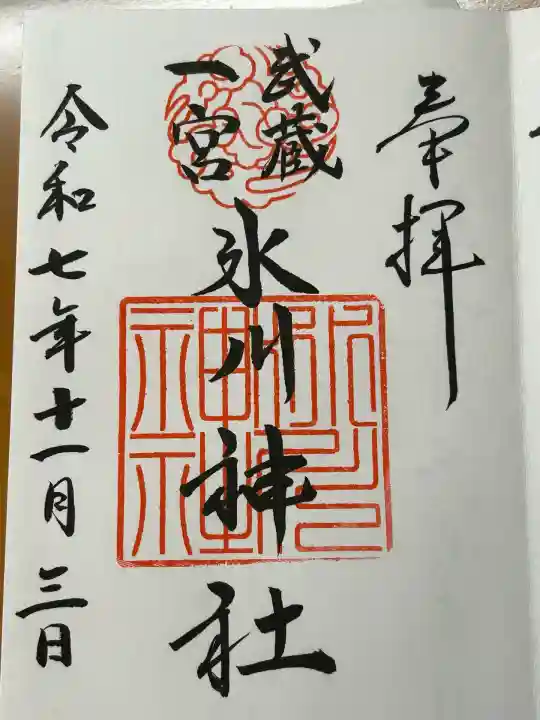 奉拝
武蔵
一宮
氷川神社
令和七年十一月三日